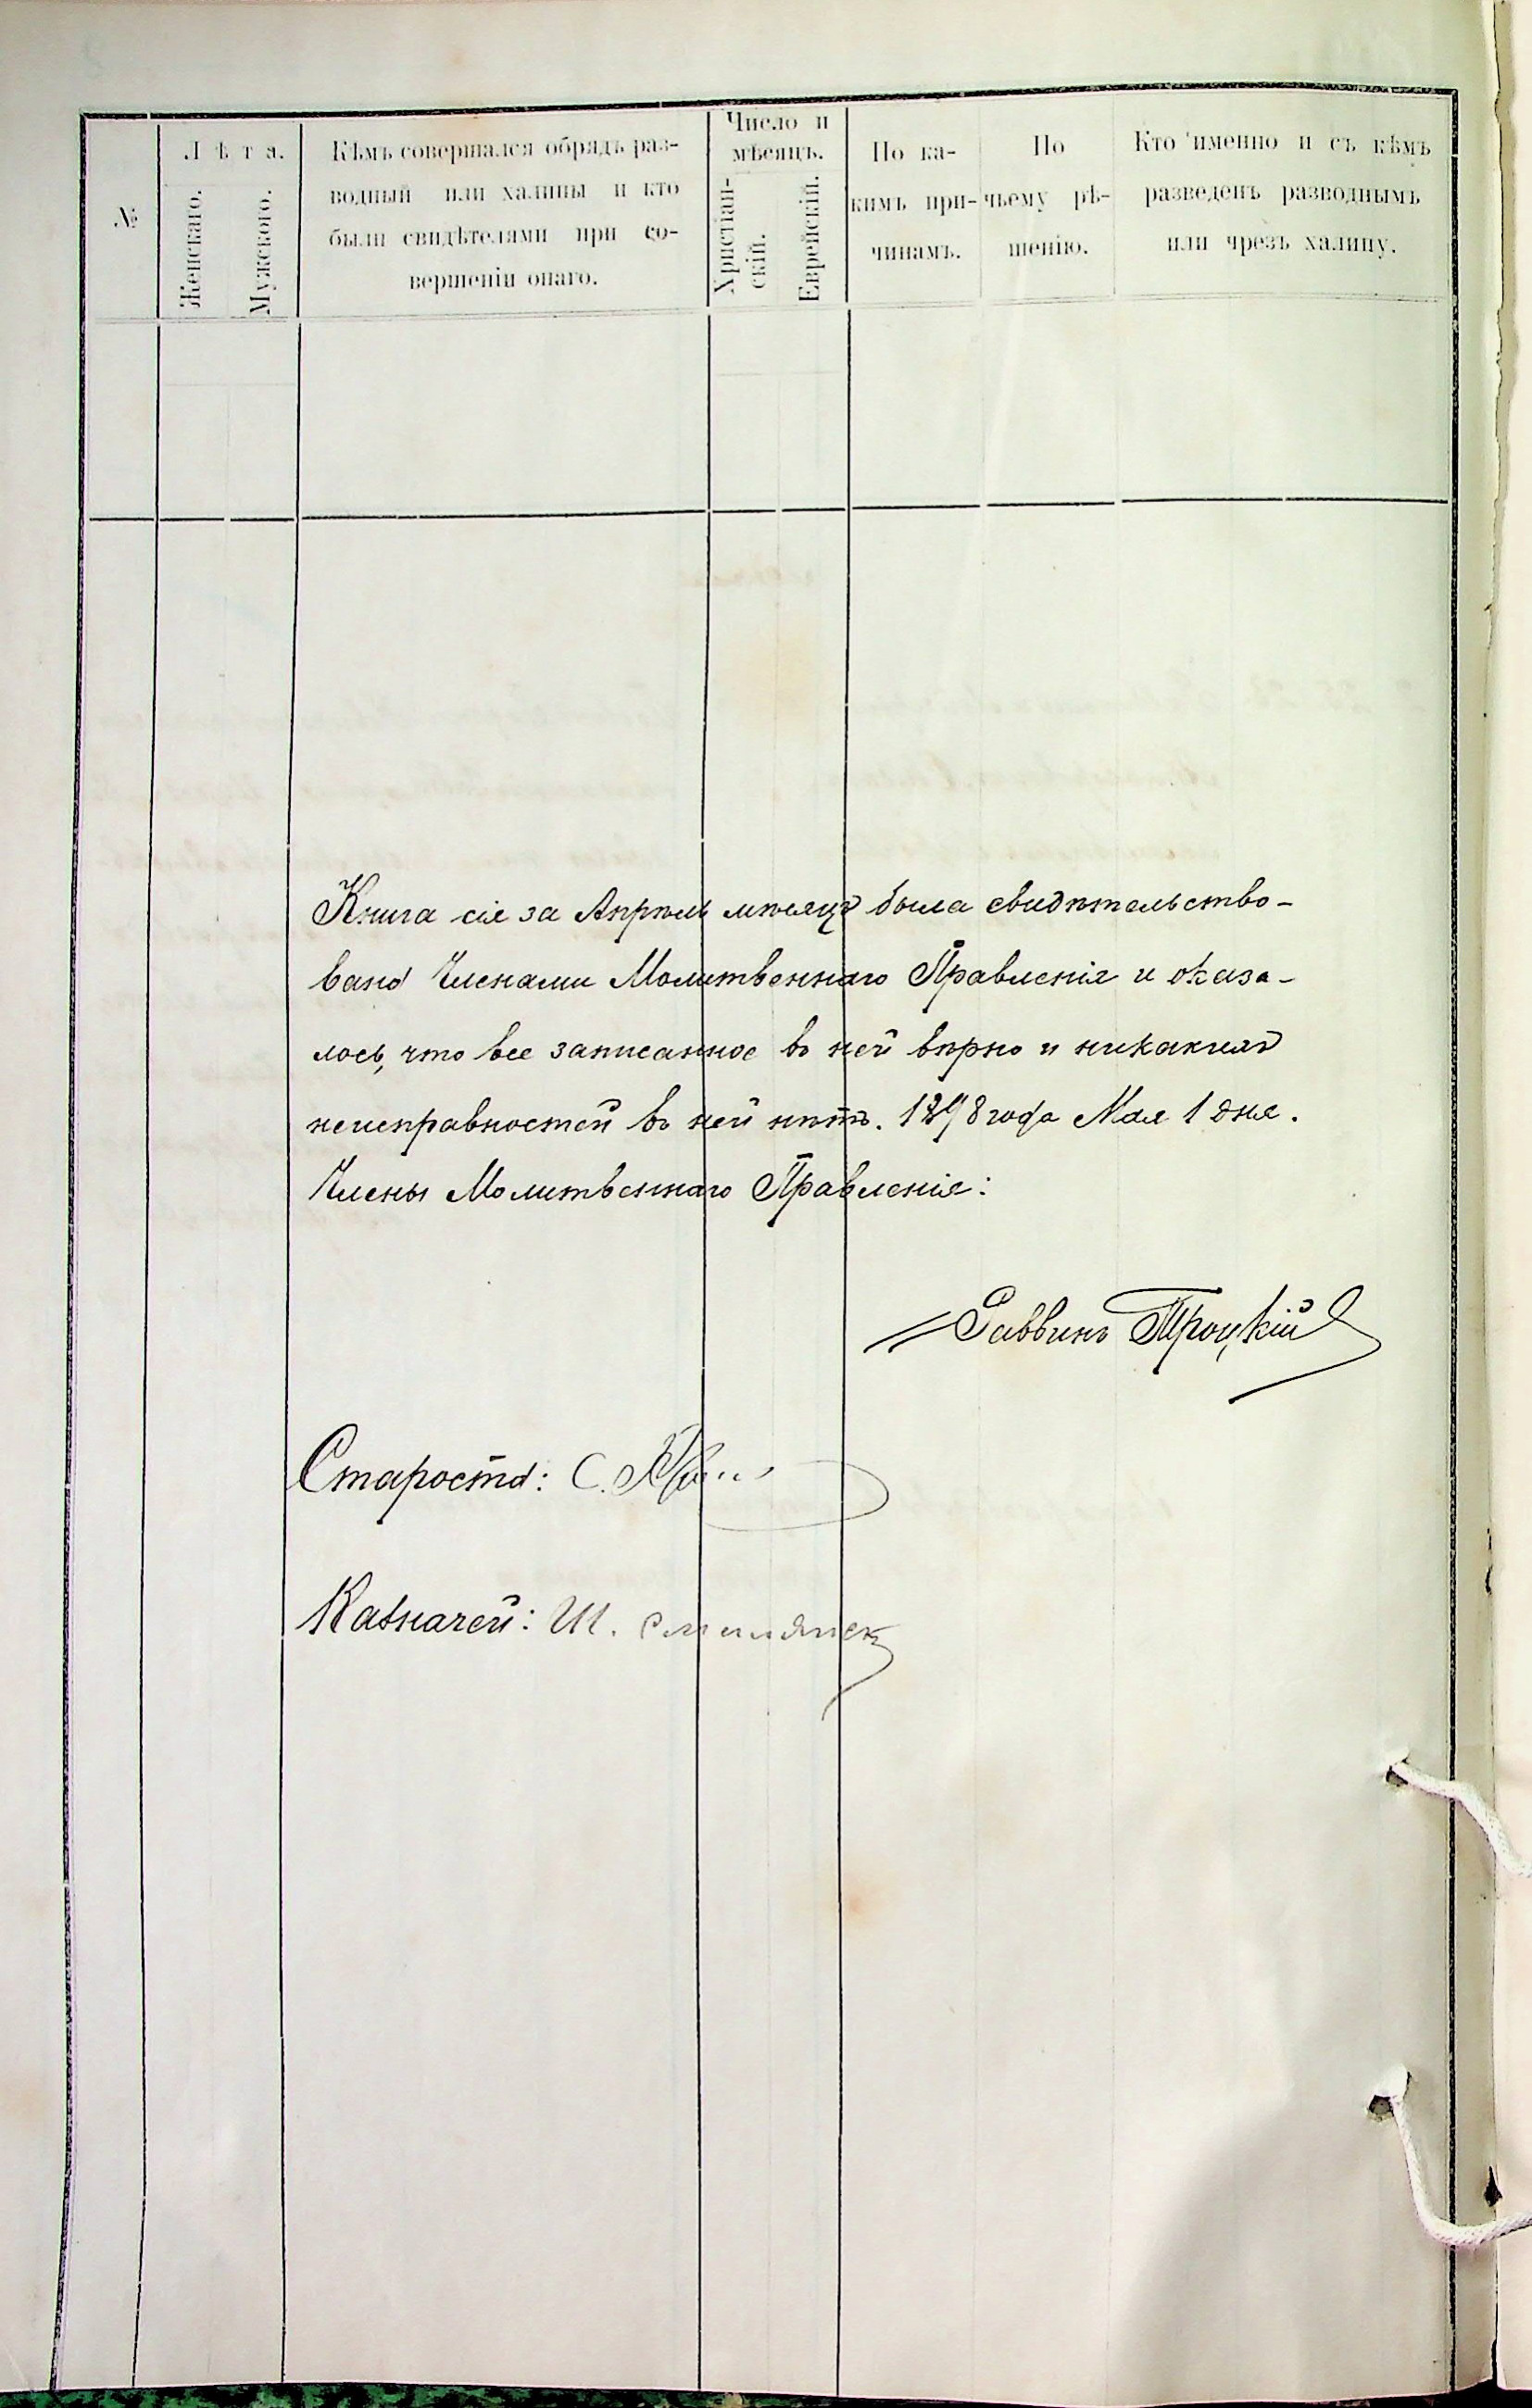 №
Лѣта.
Женскаго.
Мужского.
Кѣмъ совершался обрядъ раз-
водный или халицы и кто
были свидѣтелями при со-
вершеніи онаго.
Число и
мѣсяцъ.
Христіан-
скій.
Еврейскій.
По ка-
кимъ при-
чинамъ.
По
чьему рѣ-
шенію.
Кто именно и съ кѣмъ
разведенъ разводнымъ
или чрезъ халицу.
Книга сія за Апрѣль мѣсяцъ была свидѣтельство-
вана Членами Молитвеннаго Правленія и оказа-
лось, что все записанное въ ней вѣрно и никакихъ
неисправностей въ ней нѣтъ. 1898 года Мая 1 дня.
Члены Молитвеннаго Правленія:
Раввинъ Троцкій
Староста: С.
Казначей: Ш.